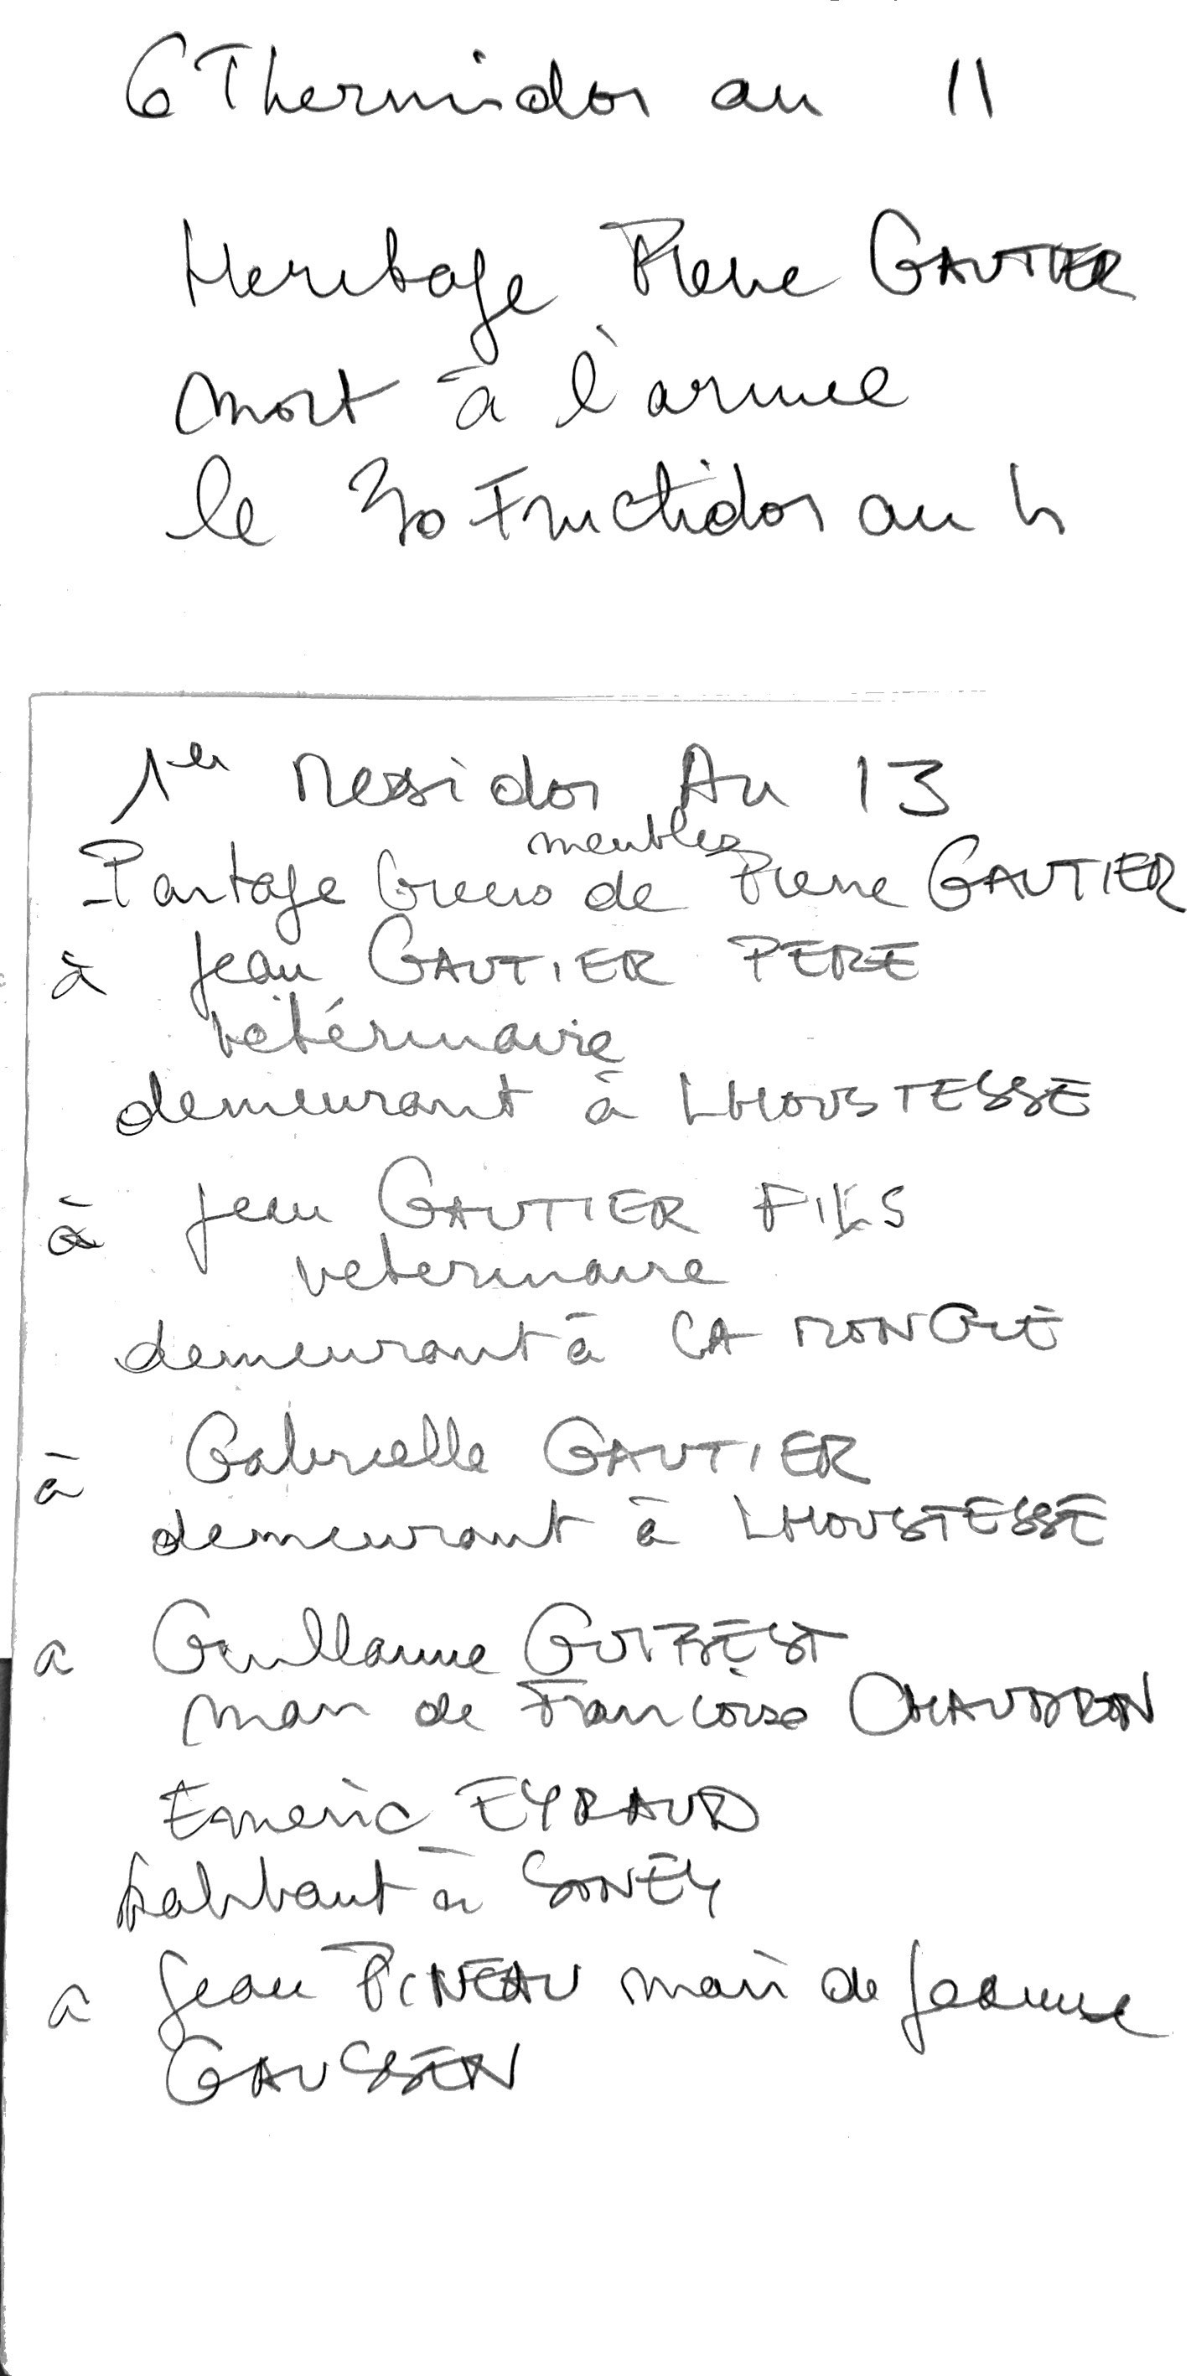 6 Thermidor an 11
Heritage Pierre GAUTIER
mort à l'armee
le 30 Fructidor an 4
1er Messidor An 13
meubles
Partage biens de Pierre GAUTIER
à Jean GAUTIER PERE
vétérinaire
demeurant à LHOUSTESSE
à Jean GAUTIER FILS
veterinaire
demeurant à CAMONGIE
à Gabrielle GAUTIER
demeurant à LHOUSTESSE
a Guillaume GUIBEST
mari de Françoise CHAUDRON
Emeric EYRAUD
habitant à
a Jean PINEAU mari de Jeanne
GAUSSEN